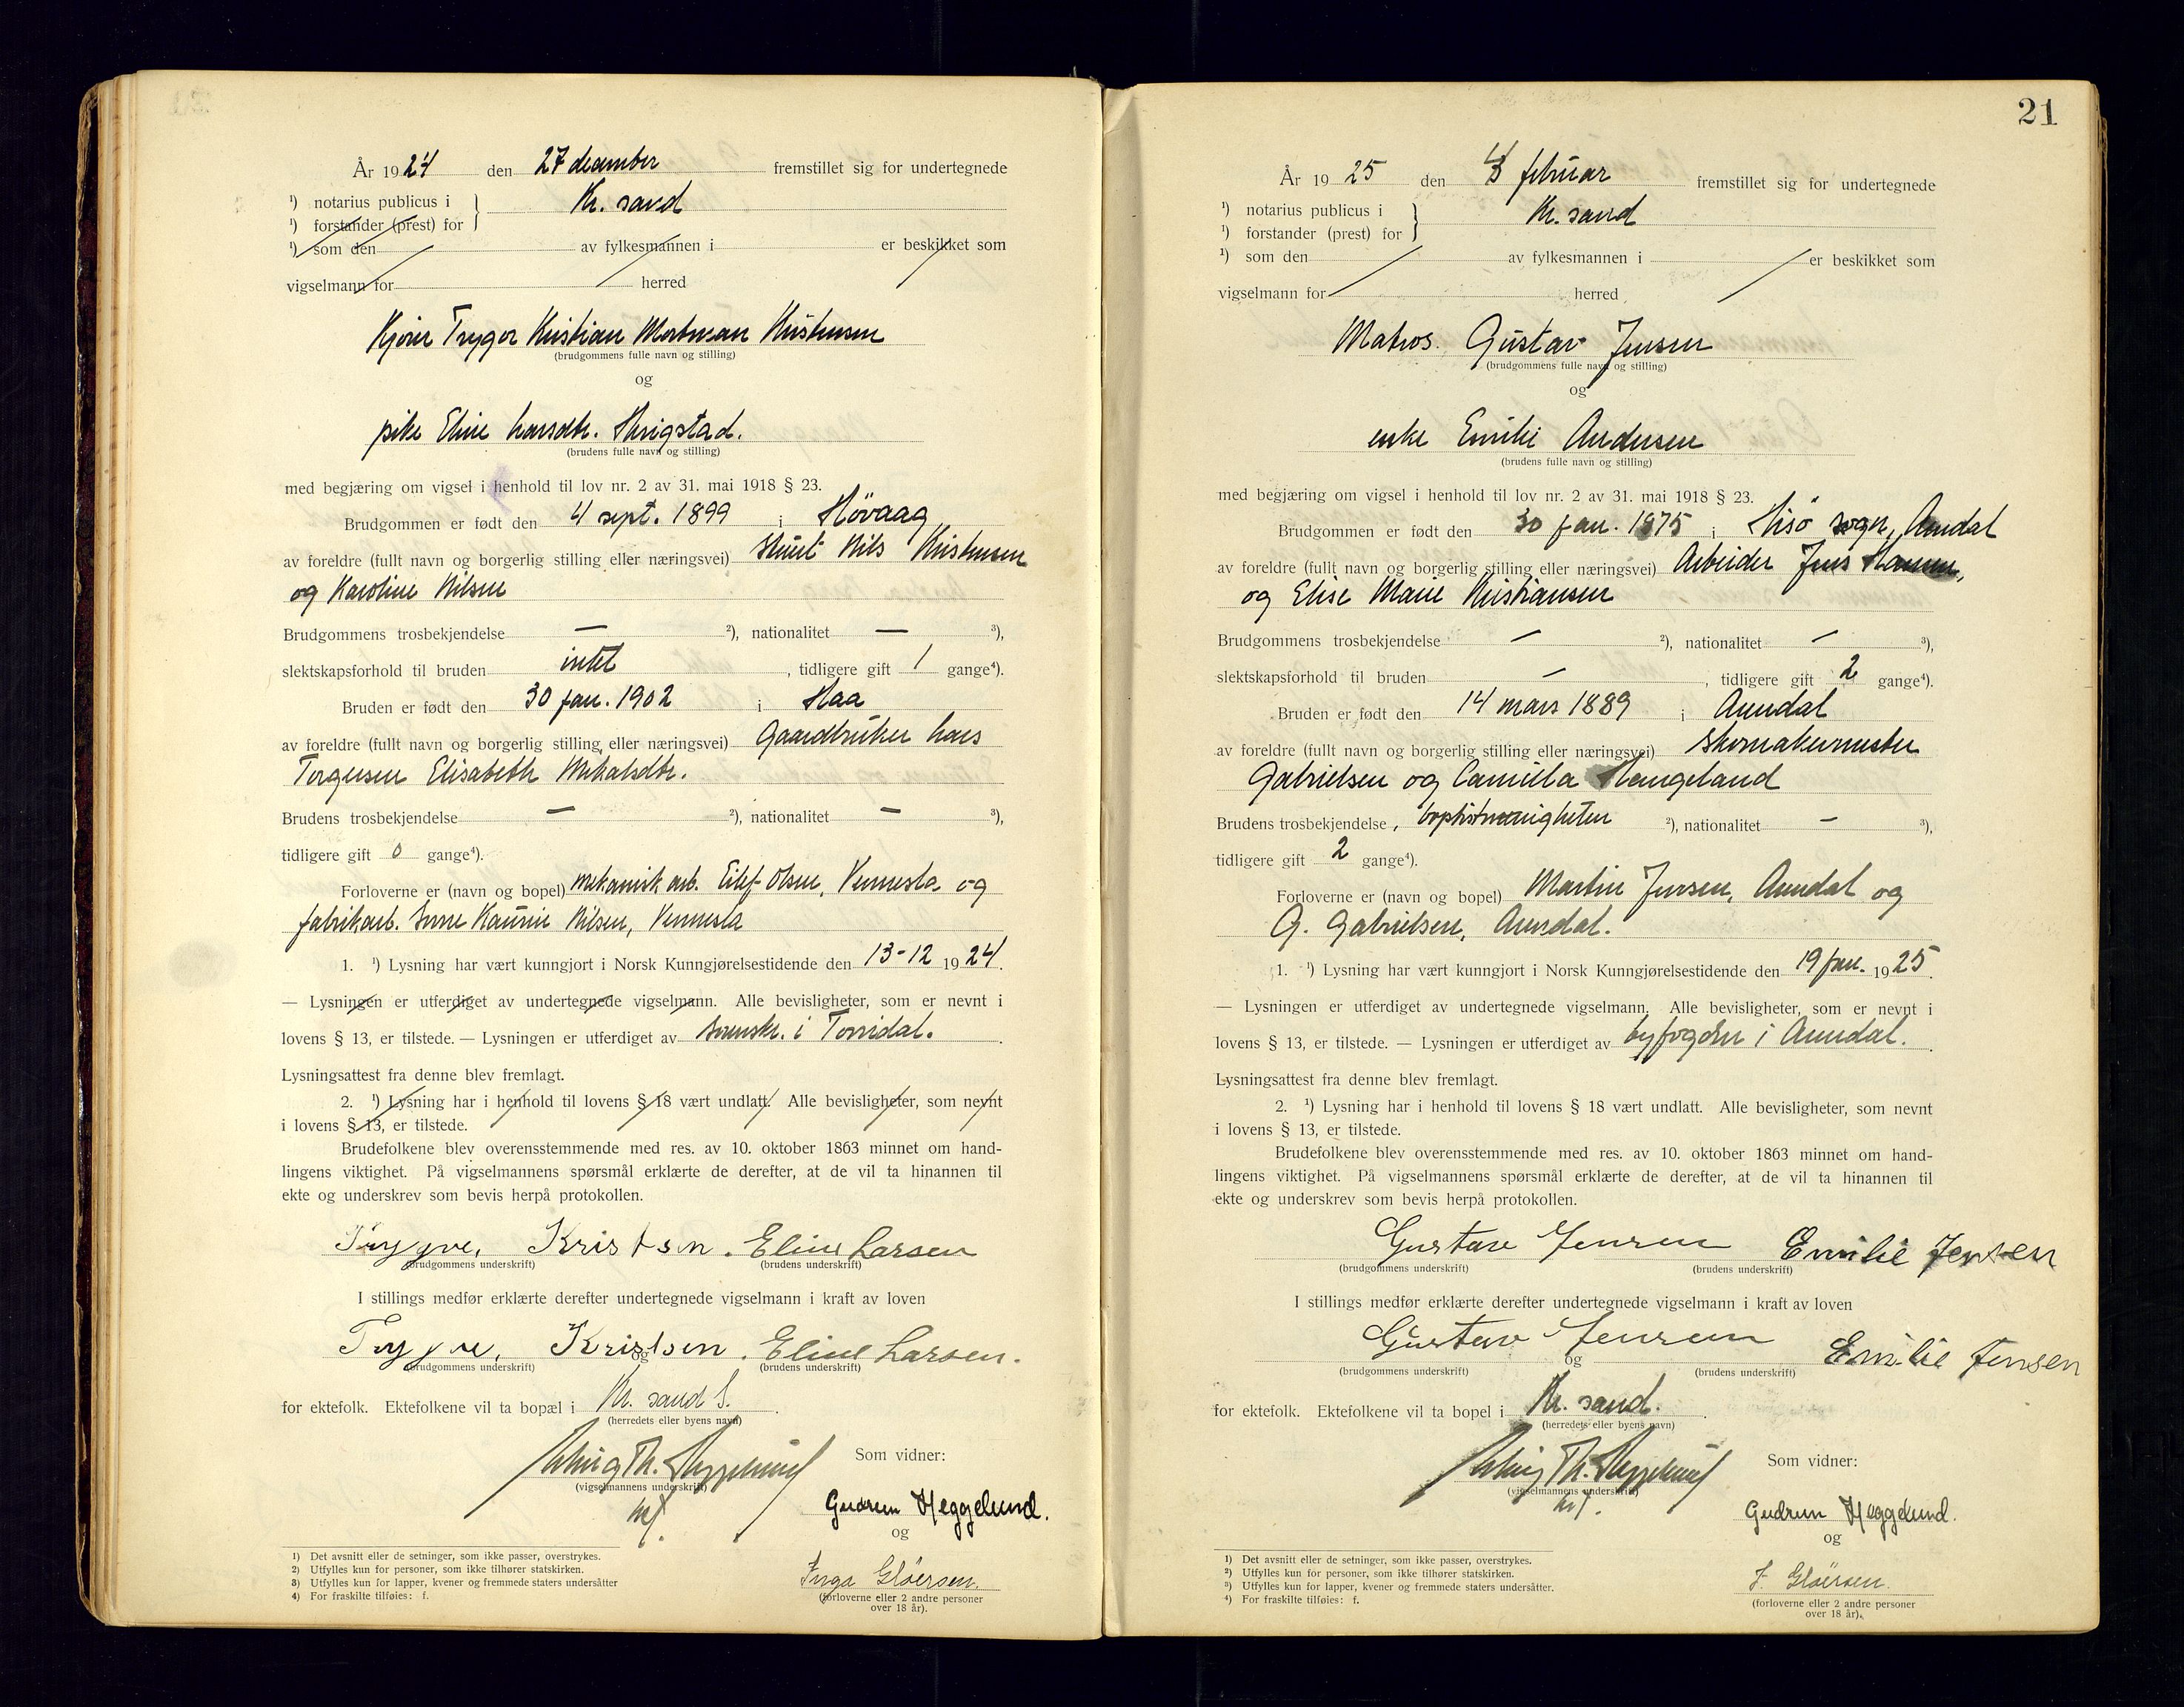 År 1924 den 27 december fremstillet sig for undertegnede
¹) notarius publicus i
Kr. sand
¹) forstander (prest) for
¹) som den av fylkesmannen i er beskikket som
vigselmann for herred
Kjører Trygve Kristian Kristensen
(brudgommens fulle navn og stilling)
og
pike Eline Larsdtr. Herigstad.
(brudens fulle navn og stilling)
med begjæring om vigsel i henhold til lov nr. 2 av 31. mai 1918 § 23.
Brudgommen er født den 4 sept. 1899 i Høvaag
av foreldre (fullt navn og borgerlig stilling eller næringsvei) Nils Kristensen
og Karoline Nilsen
Brudgommens trosbekjendelse — ²), nationalitet — ³),
slektskapsforhold til bruden intet, tidligere gift 1 gange⁴).
Bruden er født den 30 jan. 1902 i Haa
av foreldre (fullt navn og borgerlig stilling eller næringsvei) Gaardbruker Lars
Torgersen Elisabeth Mikalsdtr.
Brudens trosbekjendelse — ²), nationalitet — ³),
tidligere gift 0 gange⁴).
Forloverne er (navn og bopel) mekanisk arb. Eilef Olsen, Vennesla og
fabrikarb. Nilsen, Vennesla
1. ¹) Lysning har vært kunngjort i Norsk Kunngjørelsestidende den 13-12 1924.
— Lysningen er utferdiget av undertegnede vigselmann. Alle bevisligheter, som er nevnt i
lovens § 13, er tilstede. — Lysningen er utferdiget av sorenskr. i Torridal.
Lysningsattest fra denne blev fremlagt.
2. ¹) Lysning har i henhold til lovens § 18 vært undlatt. Alle bevisligheter, som nevnt
i lovens § 13, er tilstede.
Brudefolkene blev overensstemmende med res. av 10. oktober 1863 minnet om hand-
lingens viktighet. På vigselmannens spørsmål erklærte de derefter, at de vil ta hinannen til
ekte og underskrev som bevis herpå protokollen.
Trygve, Kristsen. Eline Larsen
(brudgommens underskrift) (brudens underskrift)
I stillings medfør erklærte derefter undertegnede vigselmann i kraft av loven
Trygve, Kristsen. Eline Larsen.
(brudgommens underskrift) og (brudens underskrift)
for ektefolk. Ektefolkene vil ta bopæl i Kr. sand S.
(herredets eller byens navn)
Th. Heggelund
Som vidner:
(vigselmannens underskrift)
Gudrun Heggelund.
og
Inga Gløersen.
(forloverne eller 2 andre personer
over 18 år).
1) Det avsnitt eller de setninger, som ikke passer, overstrykes.
2) Utfylles kun for personer, som ikke tilhører statskirken.
3) Utfylles kun for lapper, kvener og fremmede staters undersåtter
4) For fraskilte tilføies: f.
21
År 1925 den 4 februar fremstillet sig for undertegnede
¹) notarius publicus i
Kr. sand
¹) forstander (prest) for
¹) som den av fylkesmannen i er beskikket som
vigselmann for herred
Matros. Gustav Jensen
(brudgommens fulle navn og stilling)
og
enke Emilie Andersen
(brudens fulle navn og stilling)
med begjæring om vigsel i henhold til lov nr. 2 av 31. mai 1918 § 23.
Brudgommen er født den 30 jan. 1875 i Hisø sogn, Arendal
av foreldre (fullt navn og borgerlig stilling eller næringsvei) Arbeider Jens Hansen,
og Elise Marie Kristiansen
Brudgommens trosbekjendelse — ²), nationalitet — ³),
slektskapsforhold til bruden —, tidligere gift 2 gange⁴).
Bruden er født den 14 mars 1889 i Arendal
av foreldre (fullt navn og borgerlig stilling eller næringsvei) skomakermester
Gabrielsen og Camilla Haugeland
Brudens trosbekjendelse, baptistmenigheten ²), nationalitet — ³),
tidligere gift 2 gange⁴).
Forloverne er (navn og bopel) Martin Jensen, Arendal og
G. Gabrielsen, Arendal.
1. ¹) Lysning har vært kunngjort i Norsk Kunngjørelsestidende den 19 jan. 1925.
— Lysningen er utferdiget av undertegnede vigselmann. Alle bevisligheter, som er nevnt i
lovens § 13, er tilstede. — Lysningen er utferdiget av byfogden i Arendal.
Lysningsattest fra denne blev fremlagt.
2. ¹) Lysning har i henhold til lovens § 18 vært undlatt. Alle bevisligheter, som nevnt
i lovens § 13, er tilstede.
Brudefolkene blev overensstemmende med res. av 10. oktober 1863 minnet om hand-
lingens viktighet. På vigselmannens spørsmål erklærte de derefter, at de vil ta hinannen til
ekte og underskrev som bevis herpå protokollen.
Gustav Jensen Emilie Jensen
(brudgommens underskrift) (brudens underskrift)
I stillings medfør erklærte derefter undertegnede vigselmann i kraft av loven
Gustav Jensen Emilie Jensen
(brudgommens underskrift) og (brudens underskrift)
for ektefolk. Ektefolkene vil ta bopel i Kr. sand.
(herredets eller byens navn)
Th. Heggelund
Som vidner:
(vigselmannens underskrift)
Gudrun Heggelund.
og
I. Gløersen.
(forloverne eller 2 andre personer
over 18 år).
1) Det avsnitt eller de setninger, som ikke passer, overstrykes.
2) Utfylles kun for personer, som ikke tilhører statskirken.
3) Utfylles kun for lapper, kvener og fremmede staters undersåtter.
4) For fraskilte tilføies: f.